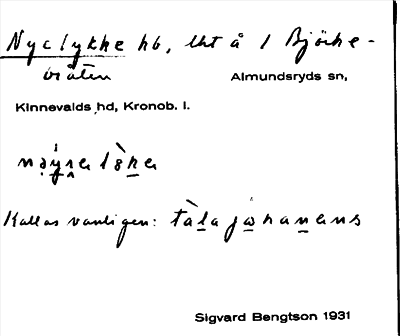 Nyclykke hb, lht å 1 Björke-
bråten Almundsryds sn,
Kinnevalds hd, Kronob. l.
Kallas vanligen: tàla johanens
Sigvard Bengtson 1931